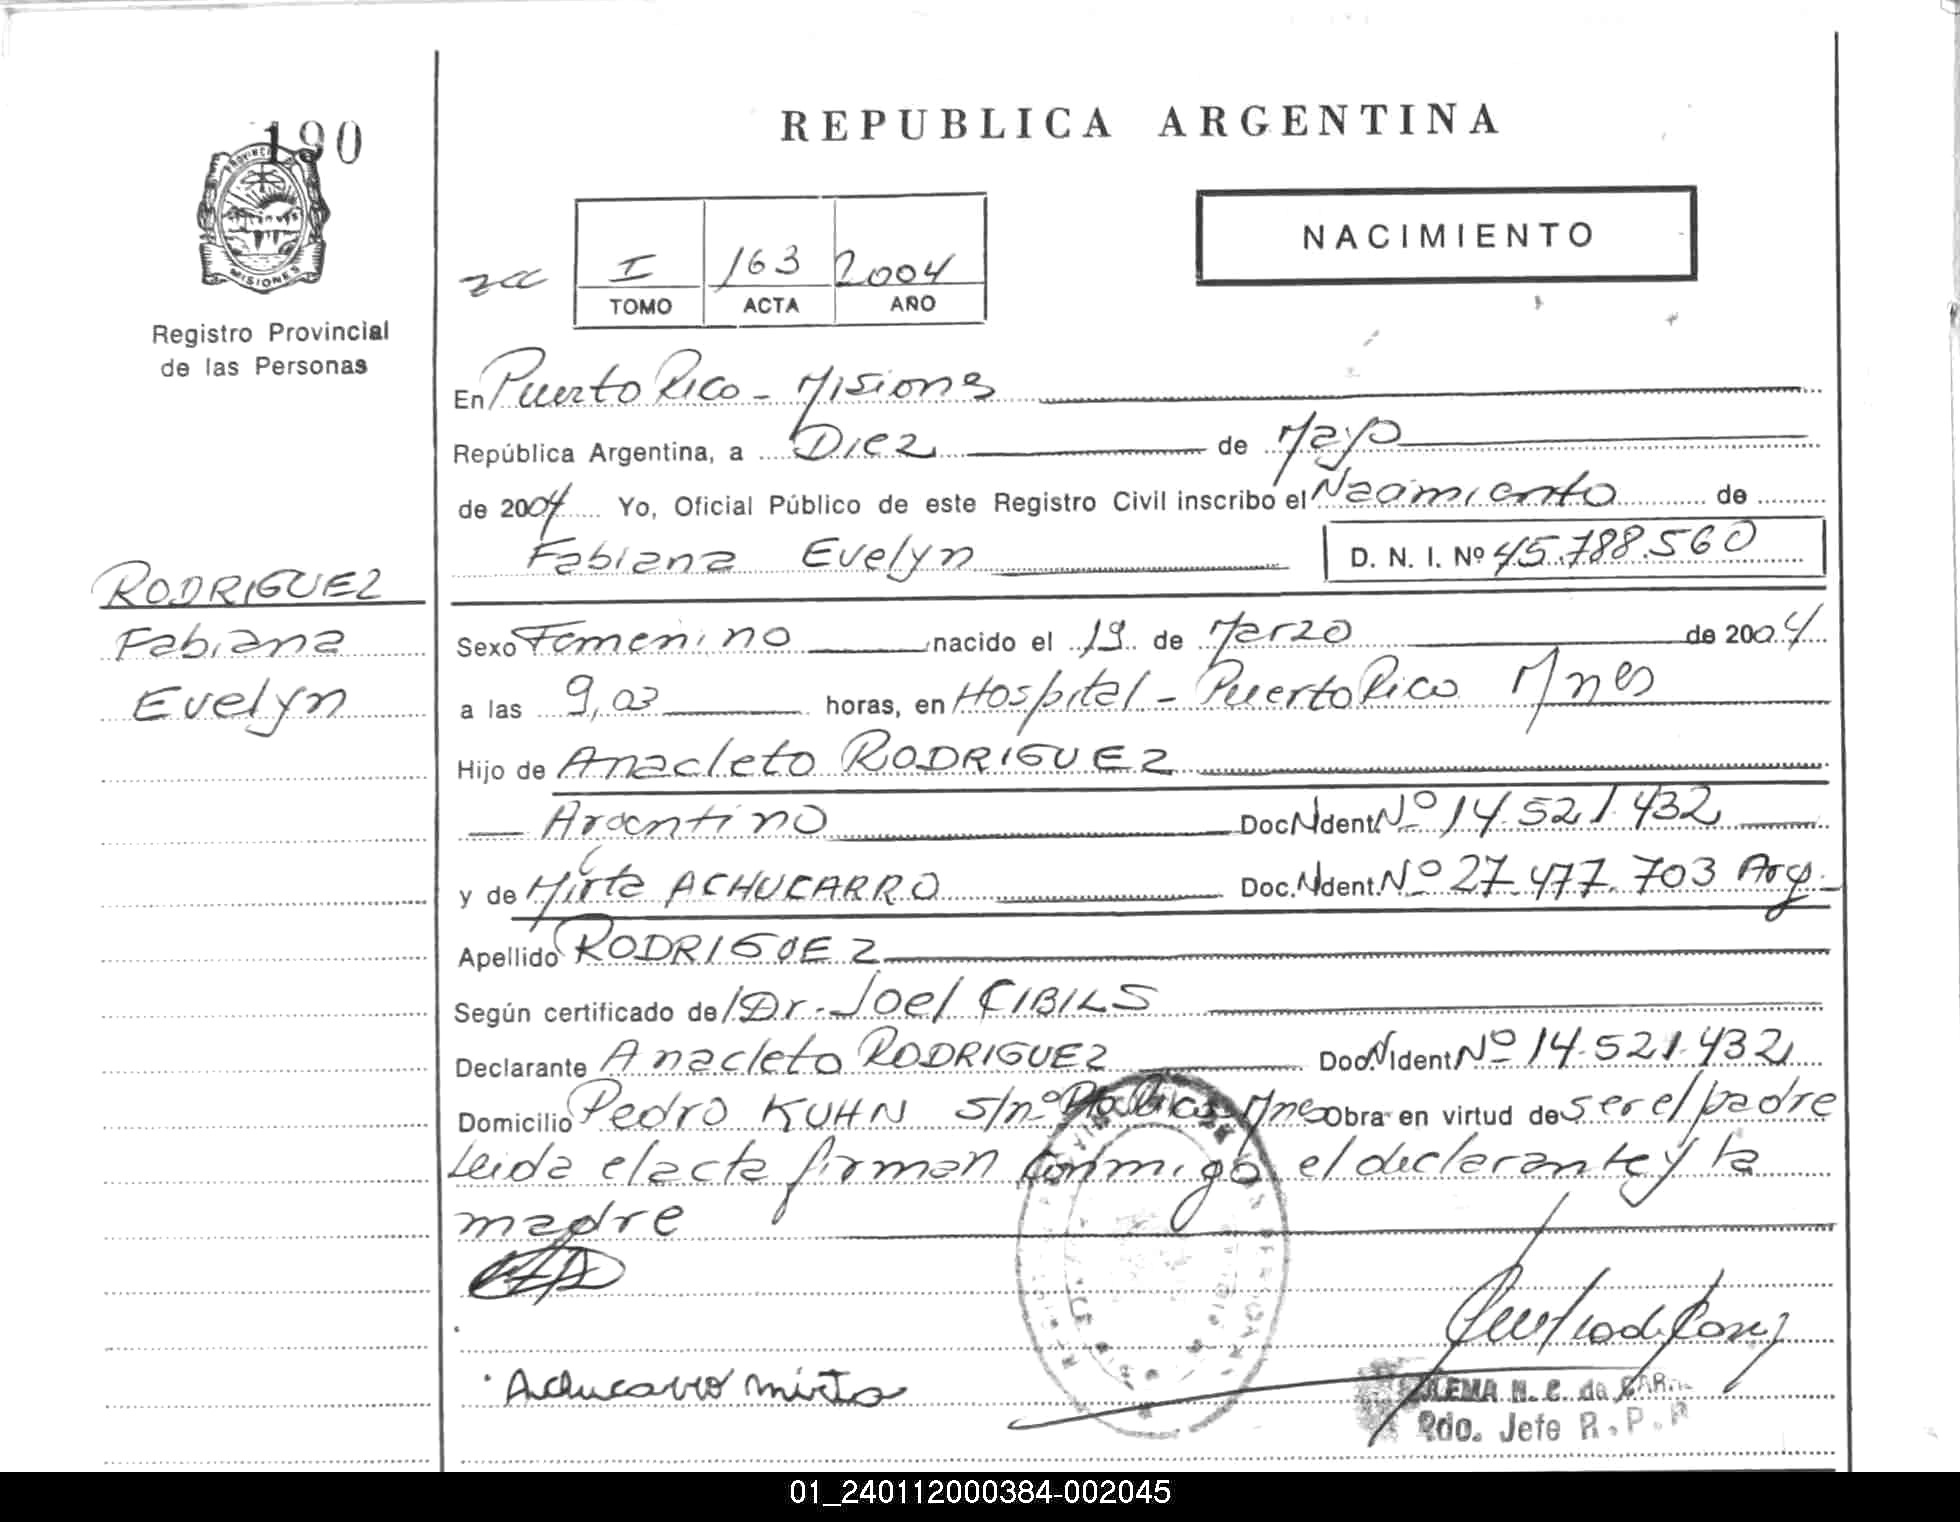 190
PROVINCIA
MISIONES
Registro Provincial
de las Personas
RODRIGUEZ
Fabiana
Evelyn
REPUBLICA ARGENTINA
NACIMIENTO
I 163 2004
TOMO ACTA AÑO
En Puerto Rico - Misiones
República Argentina, a Diez de Mayo
de 2004 Yo, Oficial Público de este Registro Civil inscribo el Nacimiento de
Fabiana Evelyn D. N. I. Nº 45.788.560
Sexo Femenino nacido el 19 de Marzo de 2004
a las 9,03 horas, en Hospital - Puerto Rico Mnes
Hijo de Anacleto RODRIGUEZ
Argentino Doc.N.Ident.Nº 14.521.432
y de Mirta ACHUCARRO Doc.N.Ident.Nº 27.477.703 Arg.
Apellido RODRIGUEZ
Según certificado de Dr. Joel CIBILS
Declarante Anacleto RODRIGUEZ Doc.N.Ident.Nº 14.521.432
Domicilio Pedro KUHN s/nº Pto Rico Mnes Obra en virtud de ser el padre
Leida el acta firman conmigo el declarante y la
madre
Achucarro mirta
M. C. de
Jefe R. P.
01_240112000384-002045